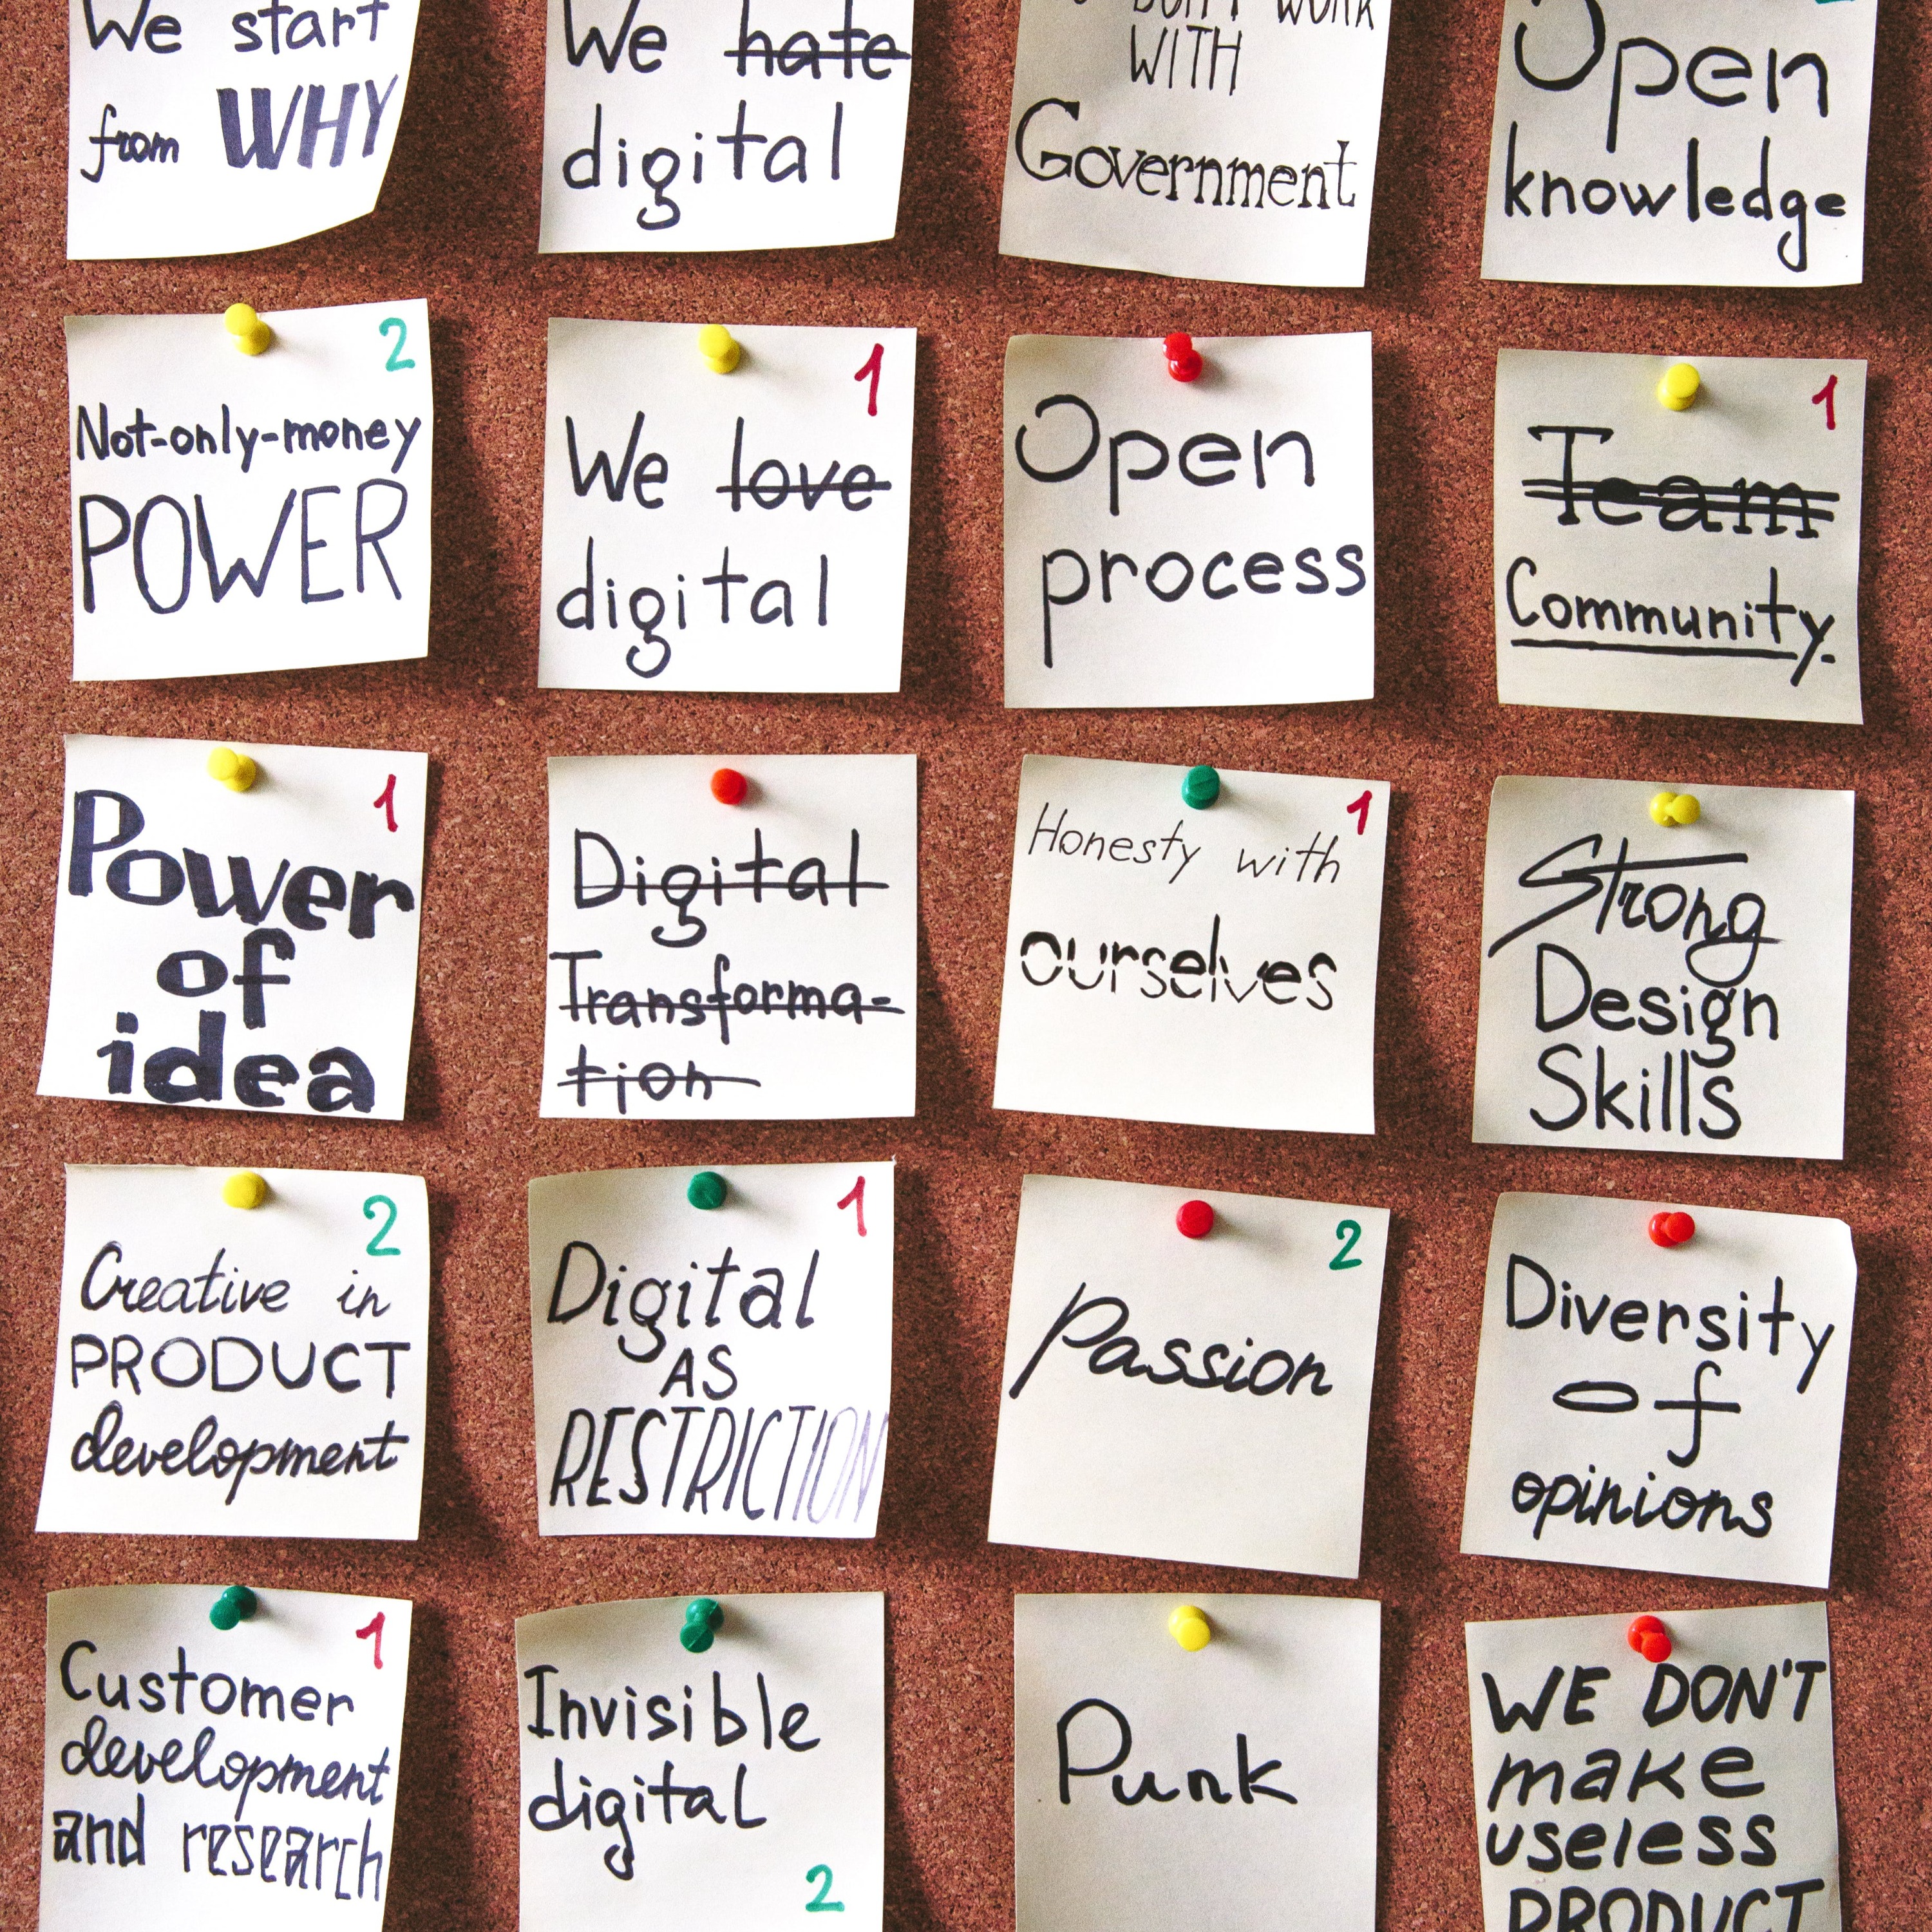 We start
from WHY
We hate
digital
DON'T WORK
WITH
Government
Open
knowledge
2
Not-only-money
POWER
1
We love
digital
Open
process
1
Team
Community.
1
Power
of
idea
Digital
Transforma-
tion
1
Honesty with
ourselves
Strong
Design
Skills
2
Creative in
PRODUCT
development
1
Digital
AS
RESTRICTION
2
Passion
Diversity
of
opinions
1
Customer
development
and research
Invisible
digital
2
Punk
WE DON'T
make
useless
PRODUCT